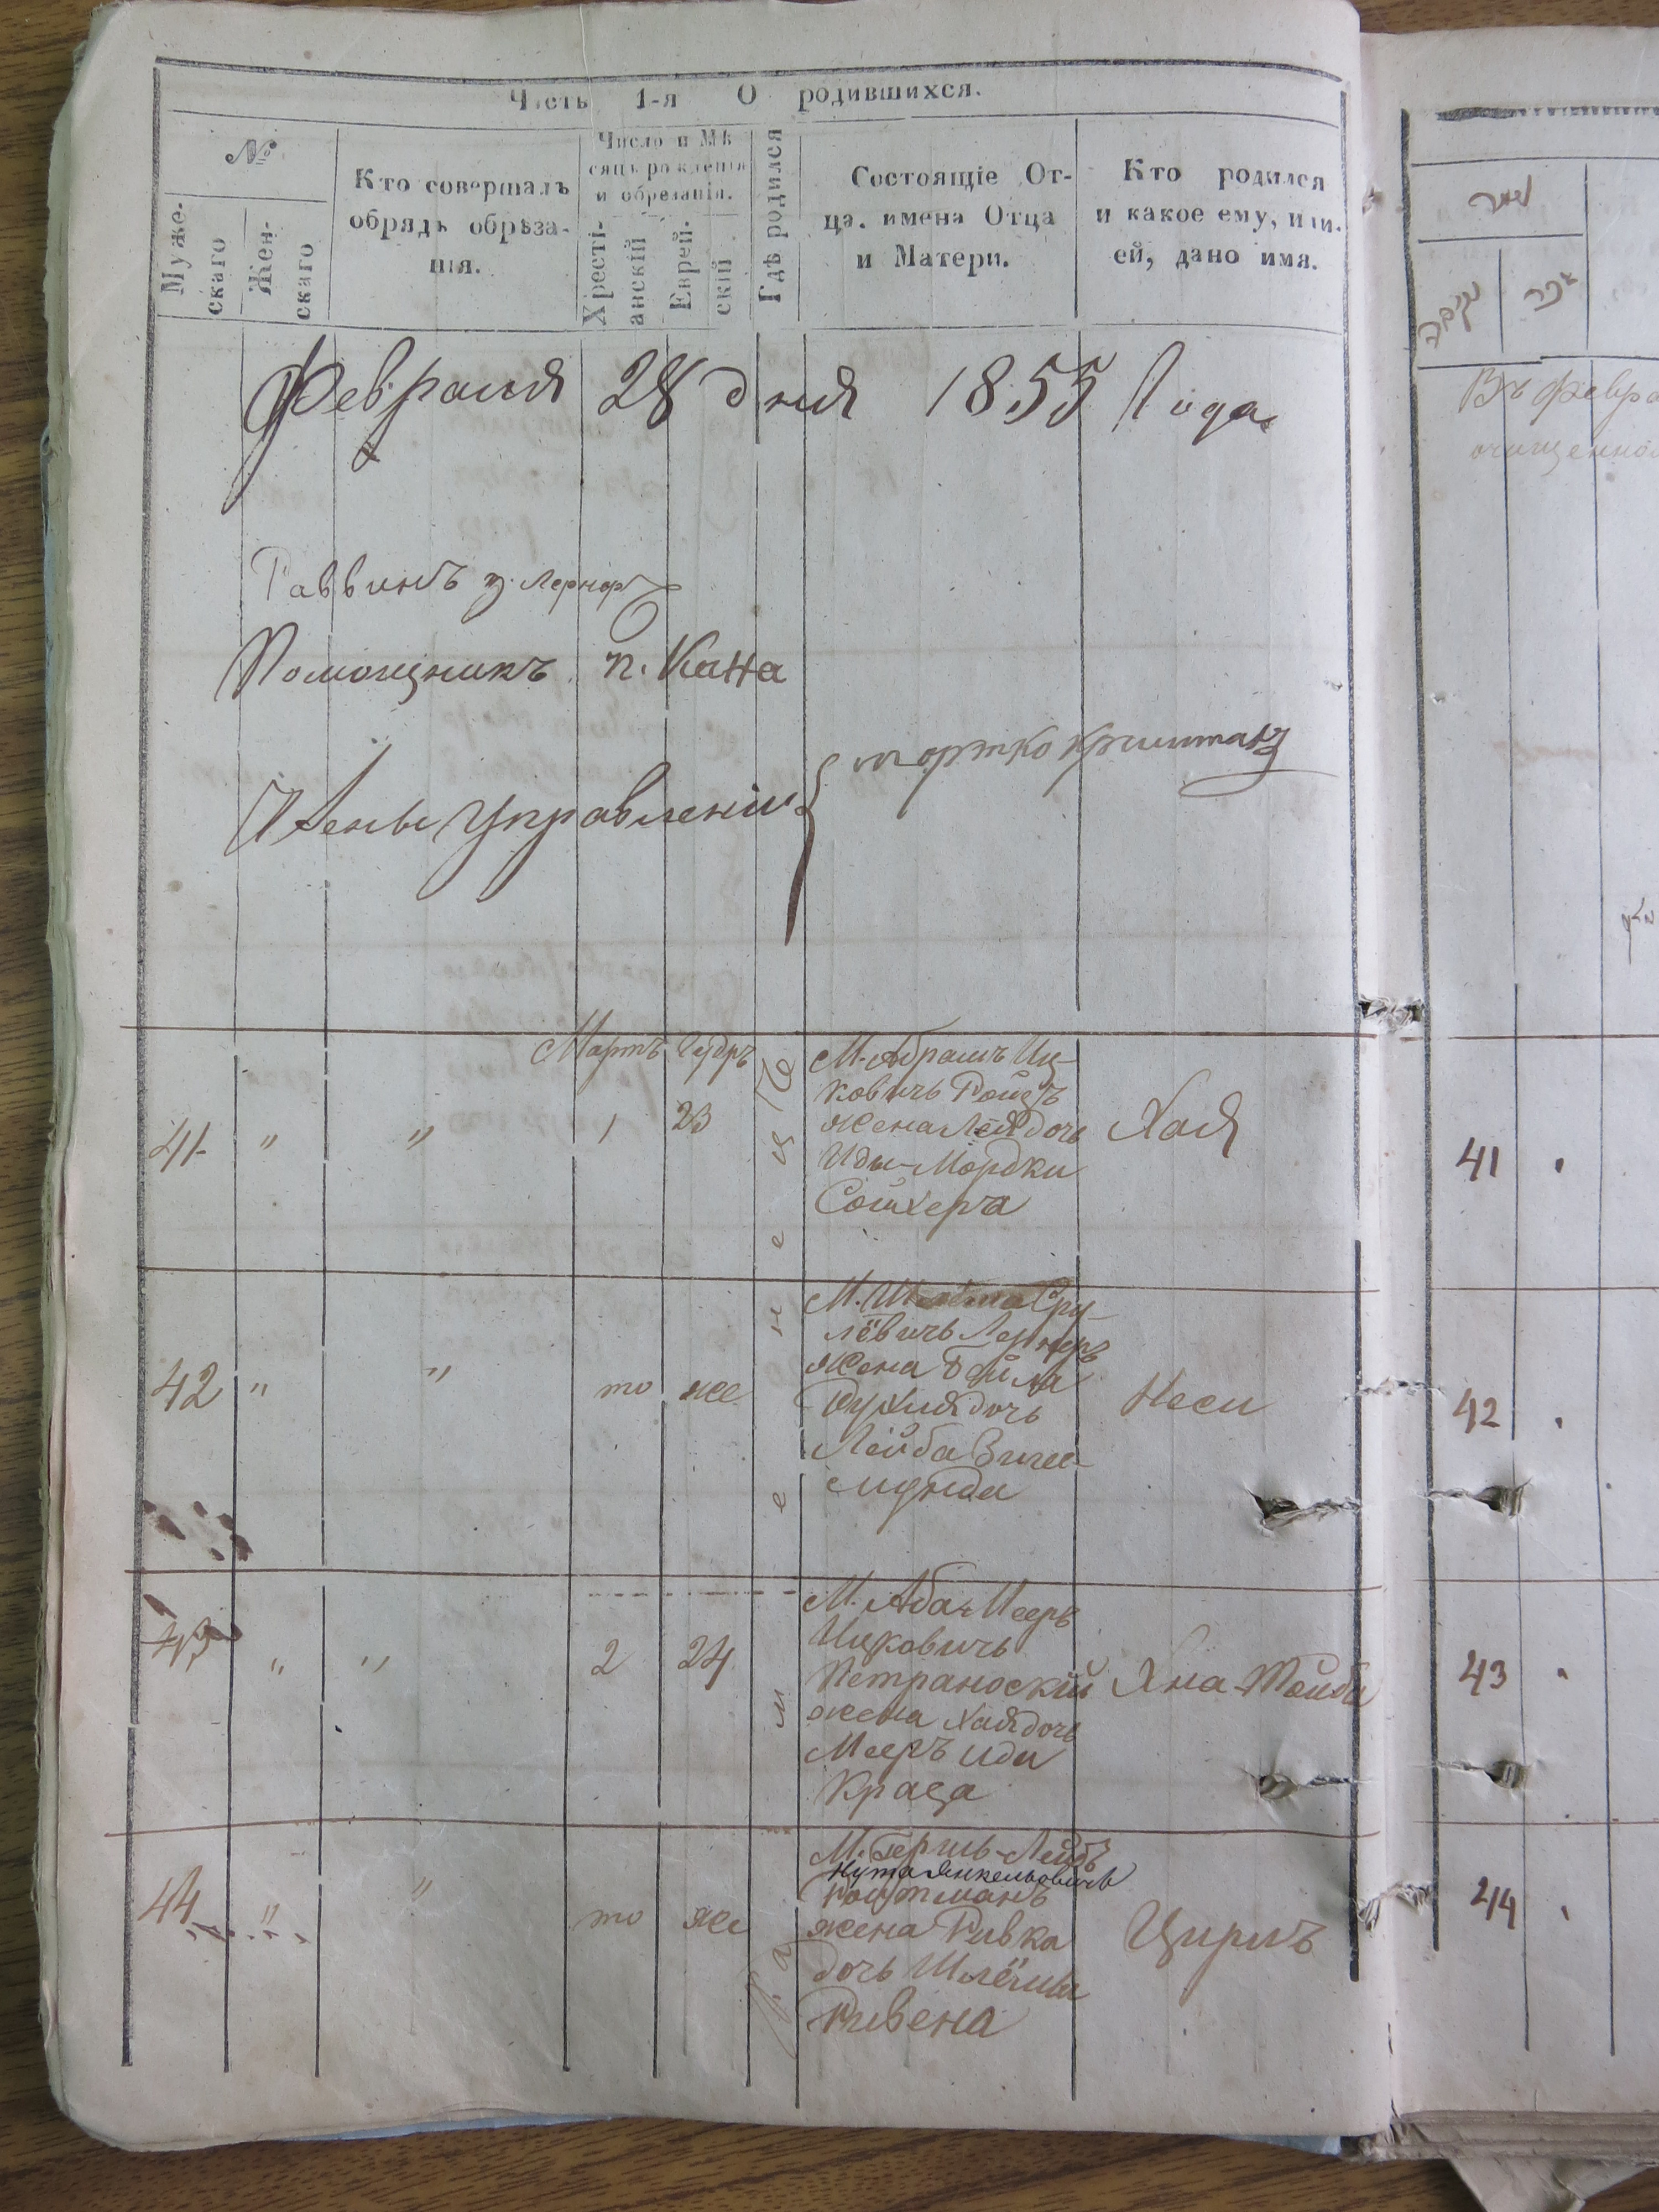 Часть 1-я О родившихся.
№
Муже-
скаго
Жен-
скаго
Кто совершалъ
обрядъ обрѣза-
нія.
Число и Мѣ
сяцъ рожденія
и обрезанія.
Хресті-
анскій
Еврей-
скій
Гдѣ родился
Состоящіе От-
ца, имена Отца
и Матери.
Кто родился
и какое ему, или
ей, дано имя.
Февраля 28 дня 1855 Года
Раввинъ З. Лернеръ
Помощникъ П. Кана
Члены Управленіи
Мартъ
41 " " 1 23
М. Абрамъ Иц-
ковичъ
жена Лея дочь
Иды-Мордки
Сойхера
Хая
42 " " то же
М. Шлёма Сру-
лёвичъ Лернеръ
жена Бейла
Рухля дочь
Лейба Зиге-
мунда
Неси
43 " " 2 24
М. Аба-Мееръ
Ицковичъ
Петраноскій
жена Хая дочь
Мееръ Иди
Краза
Хна-Тойби
44 " " то же
М. Берль-Лейбъ
Нута Янкельовичъ
Ройтманъ
жена Ривка
дочь Шлёмы
Ривена
Цирль
נקבה
זכר
Въ февра
очищенно
41
42
43
44